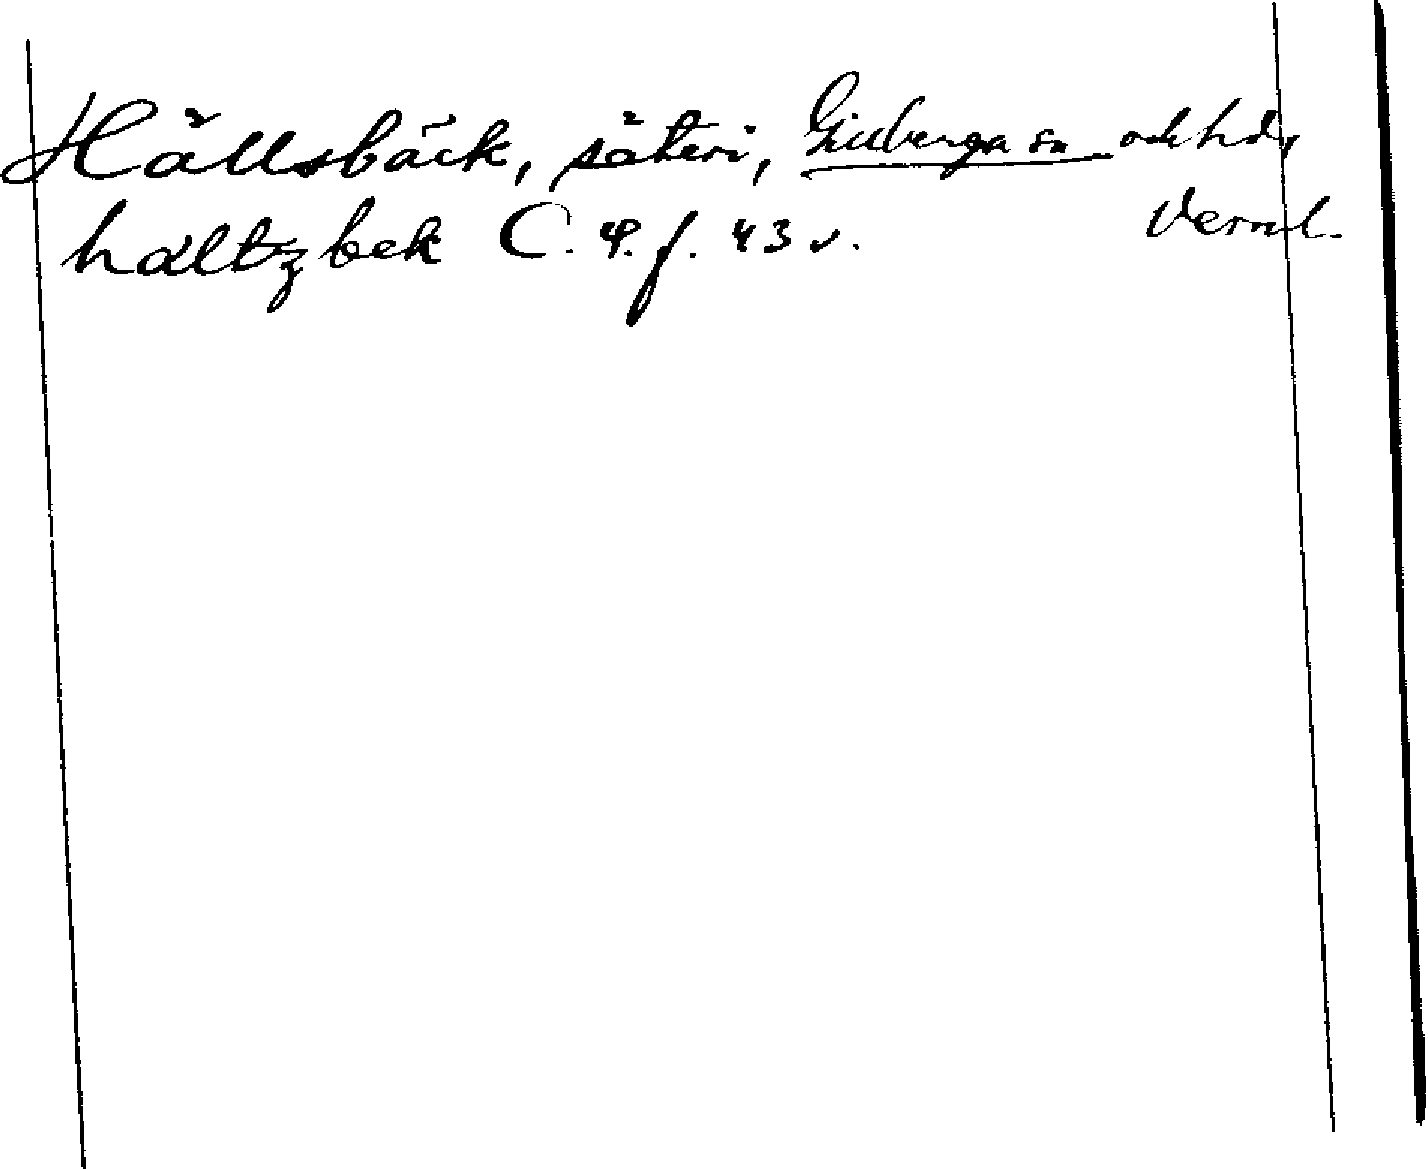 Hällsbäck, säteri, Gillberga sn och hd,
Verml.
haltzbek C. 4. f. 43 v.